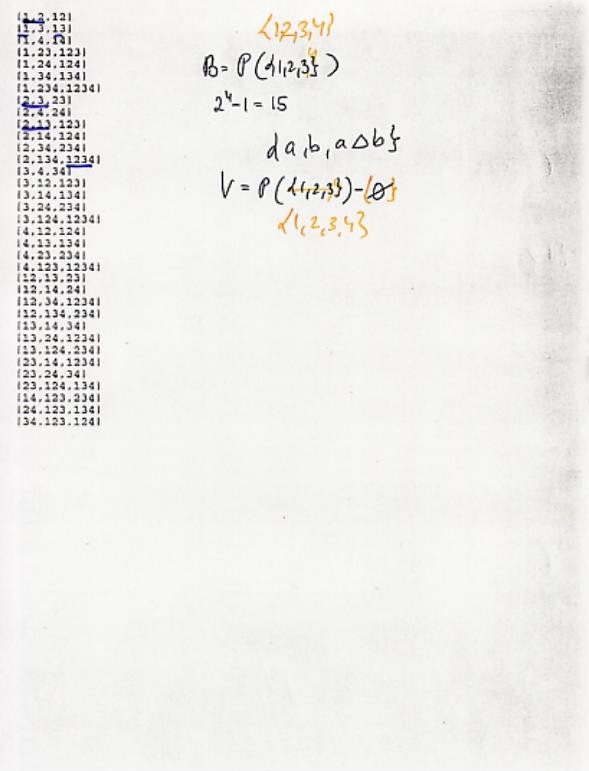 {1,2,12}
{1,3,13}
{1,4,14}
{1,23,123}
{1,24,124}
{1,34,134}
{1,234,1234}
{2,3,23}
{2,4,24}
{2,13,123}
{2,14,124}
{2,34,234}
{2,134,1234}
{3,4,34}
{3,12,123}
{3,14,134}
{3,24,234}
{3,124,1234}
{4,12,124}
{4,13,134}
{4,23,234}
{4,123,1234}
{12,13,23}
{12,14,24}
{12,34,1234}
{12,134,234}
{13,14,34}
{13,24,1234}
{13,124,234}
{23,14,1234}
{23,24,34}
{23,124,134}
{14,123,234}
{24,123,134}
{34,123,124}
{1,2,3,4}
B = P({1,2,3,4})
2^4-1 = 15
{a,b,a∆b}
V = P({1,2,3})-{∅}
{1,2,3,4}